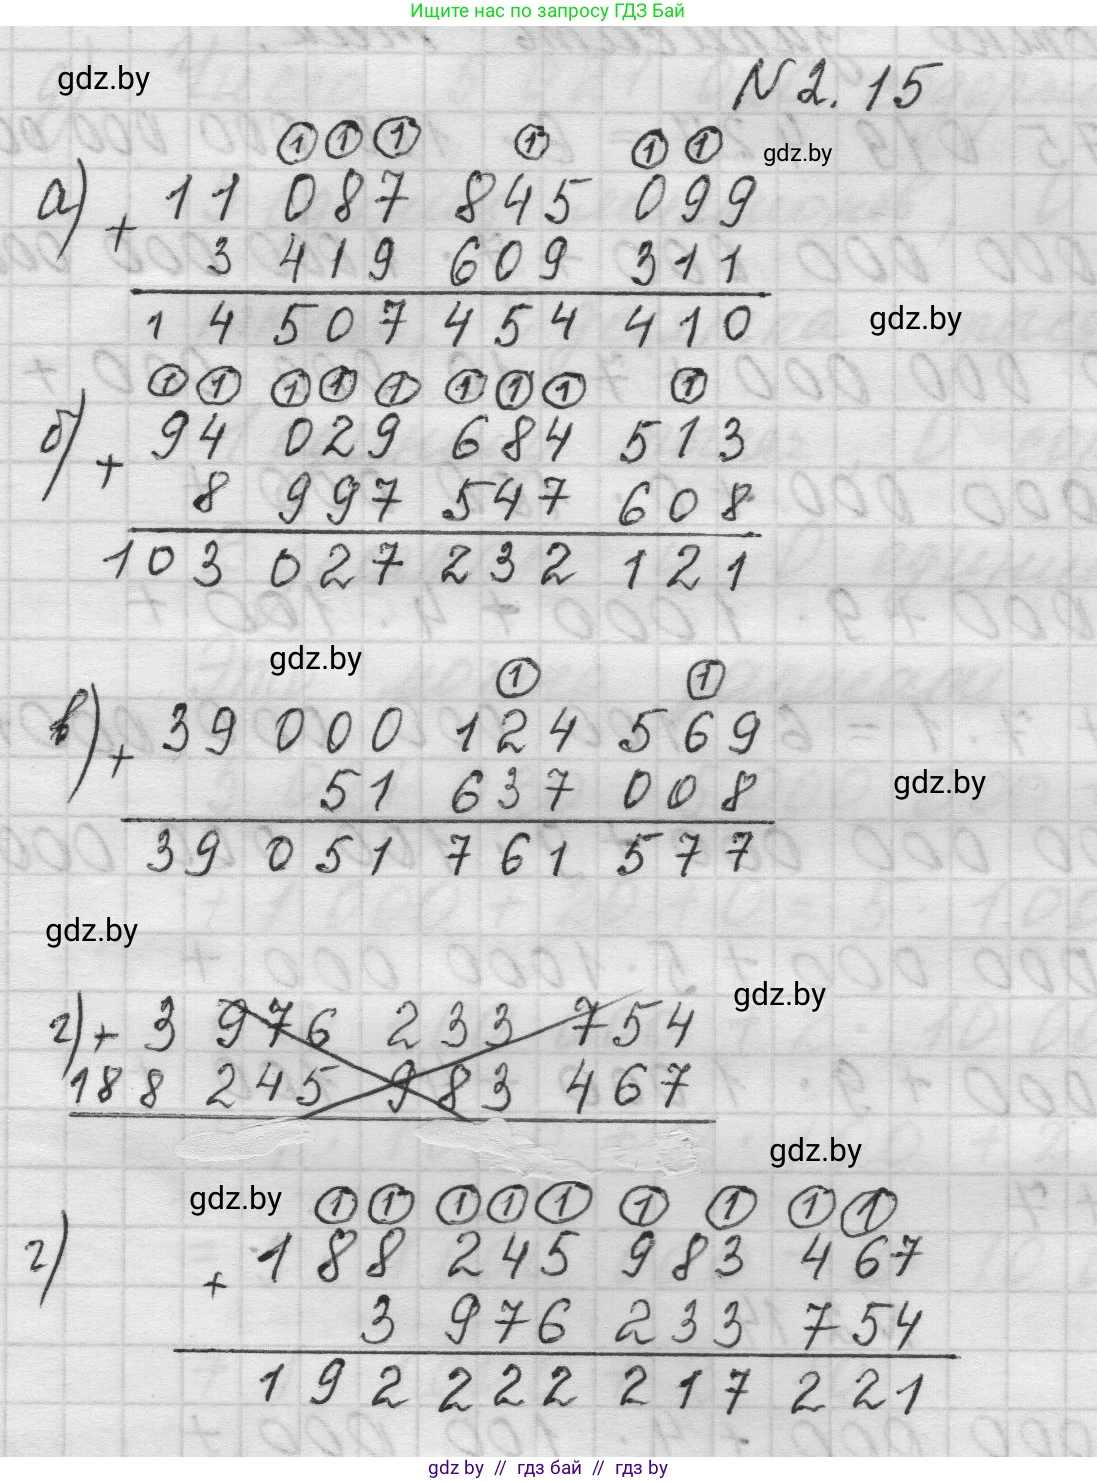 Ищите нас по запросу ГДЗ Бай
gdz.by
N 2.15
1 1 1 1 1 1
gdz.by
а) 11 087 845 099
+ 3 419 609 311
14 507 454 410
gdz.by
1 1 1 1 1 1 1 1 1
б) 94 029 684 513
+ 8 997 547 608
103 027 232 121
gdz.by
1 1
в) 39 000 124 569
+ 51 637 008
39 051 761 577
gdz.by
gdz.by
gdz.by
г) + 3 976 233 754
188 245 983 467
gdz.by
gdz.by
1 1 1 1 1 1 1 1 1
г) 188 245 983 467
+ 3 976 233 754
192 222 217 221
gdz.by // гдз бай // гдз by